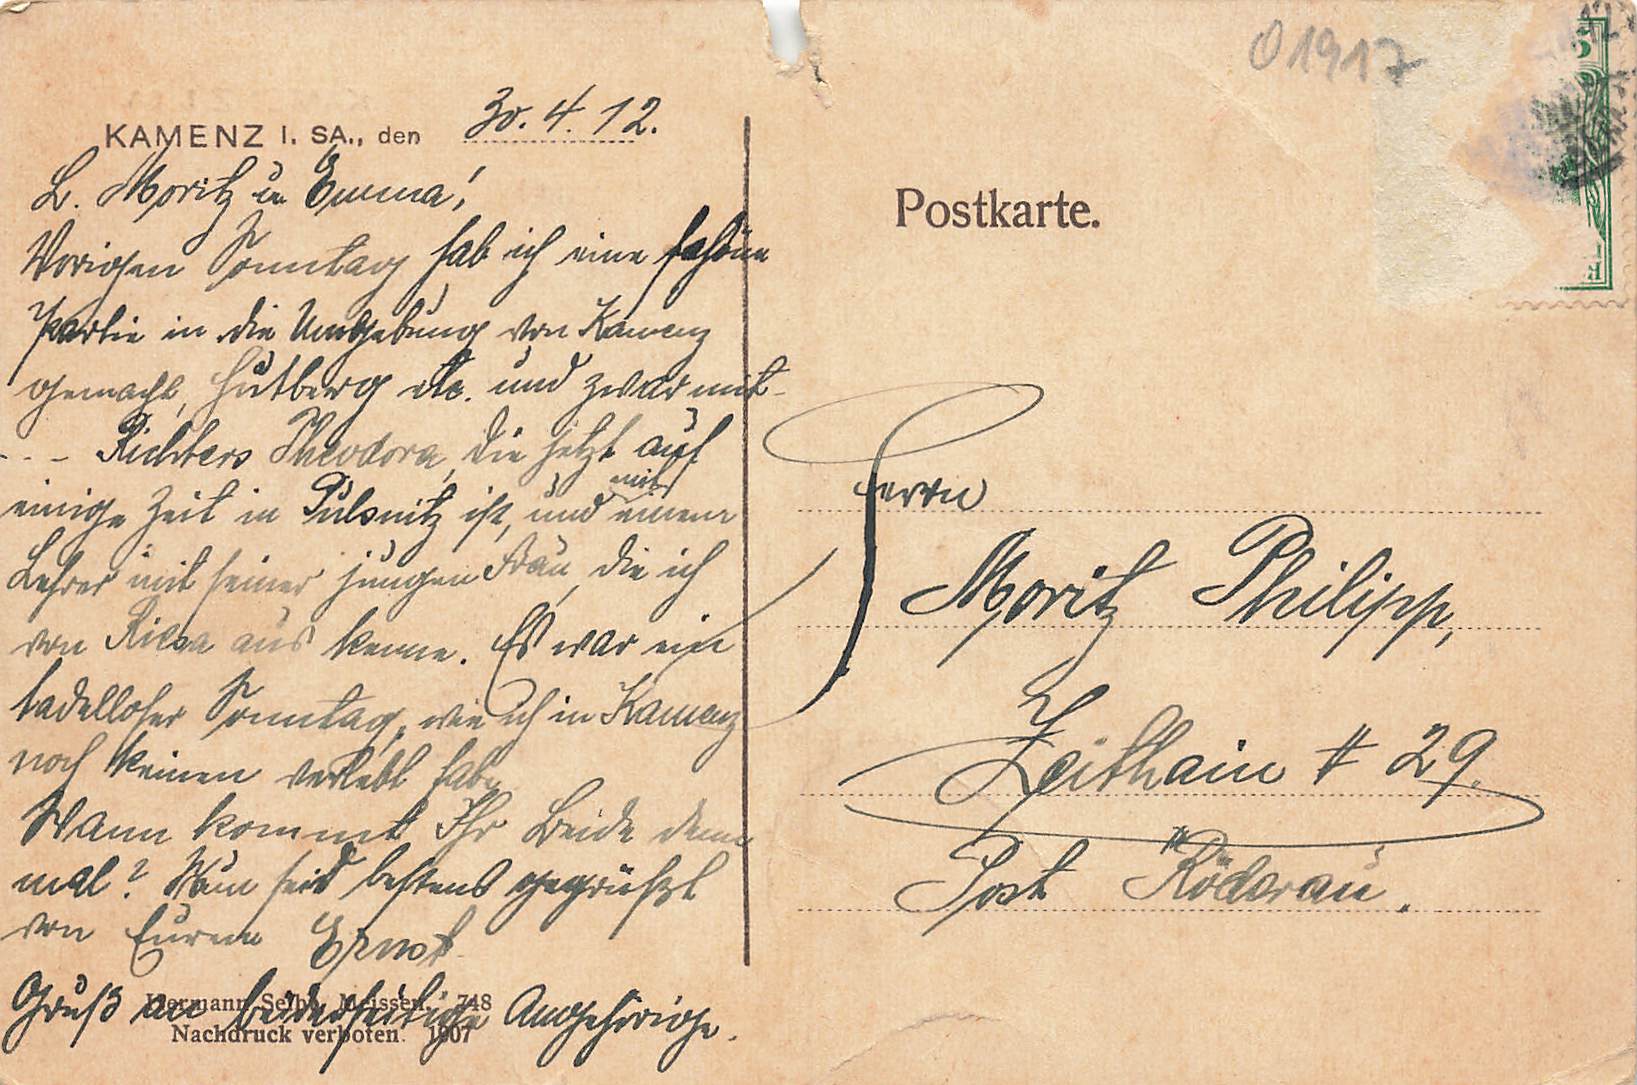 KAMENZ I. SA., den 30. 4. 12.
L. Moritz u. Emma!
Vorigen Sonntag hab ich eine schöne
Partie in die Umgebung von Kamenz
gemacht, Hutberg etc. und zwar mit
--- Richters Theodora, die jetzt auf
einige Zeit in Pulsnitz ist, und mit einem
Lehrer mit seiner jungen Frau, die ich
von Riesa aus kenne. Es war ein
tadelloser Sonntag, wie ich in Kamenz
noch keinen verlebt habe.
Wann kommt Ihr Beide denn
mal? Nun seid bestens gegrüßt
von Eurem Ernst.
Gruß an beiderseitige Angehörige.
Hermann Seibt, Meissen. 748
Nachdruck verboten. 1907
01917
Postkarte.
5
Herrn
Moritz Philipp,
Zeithain # 29.
Post Röderau.